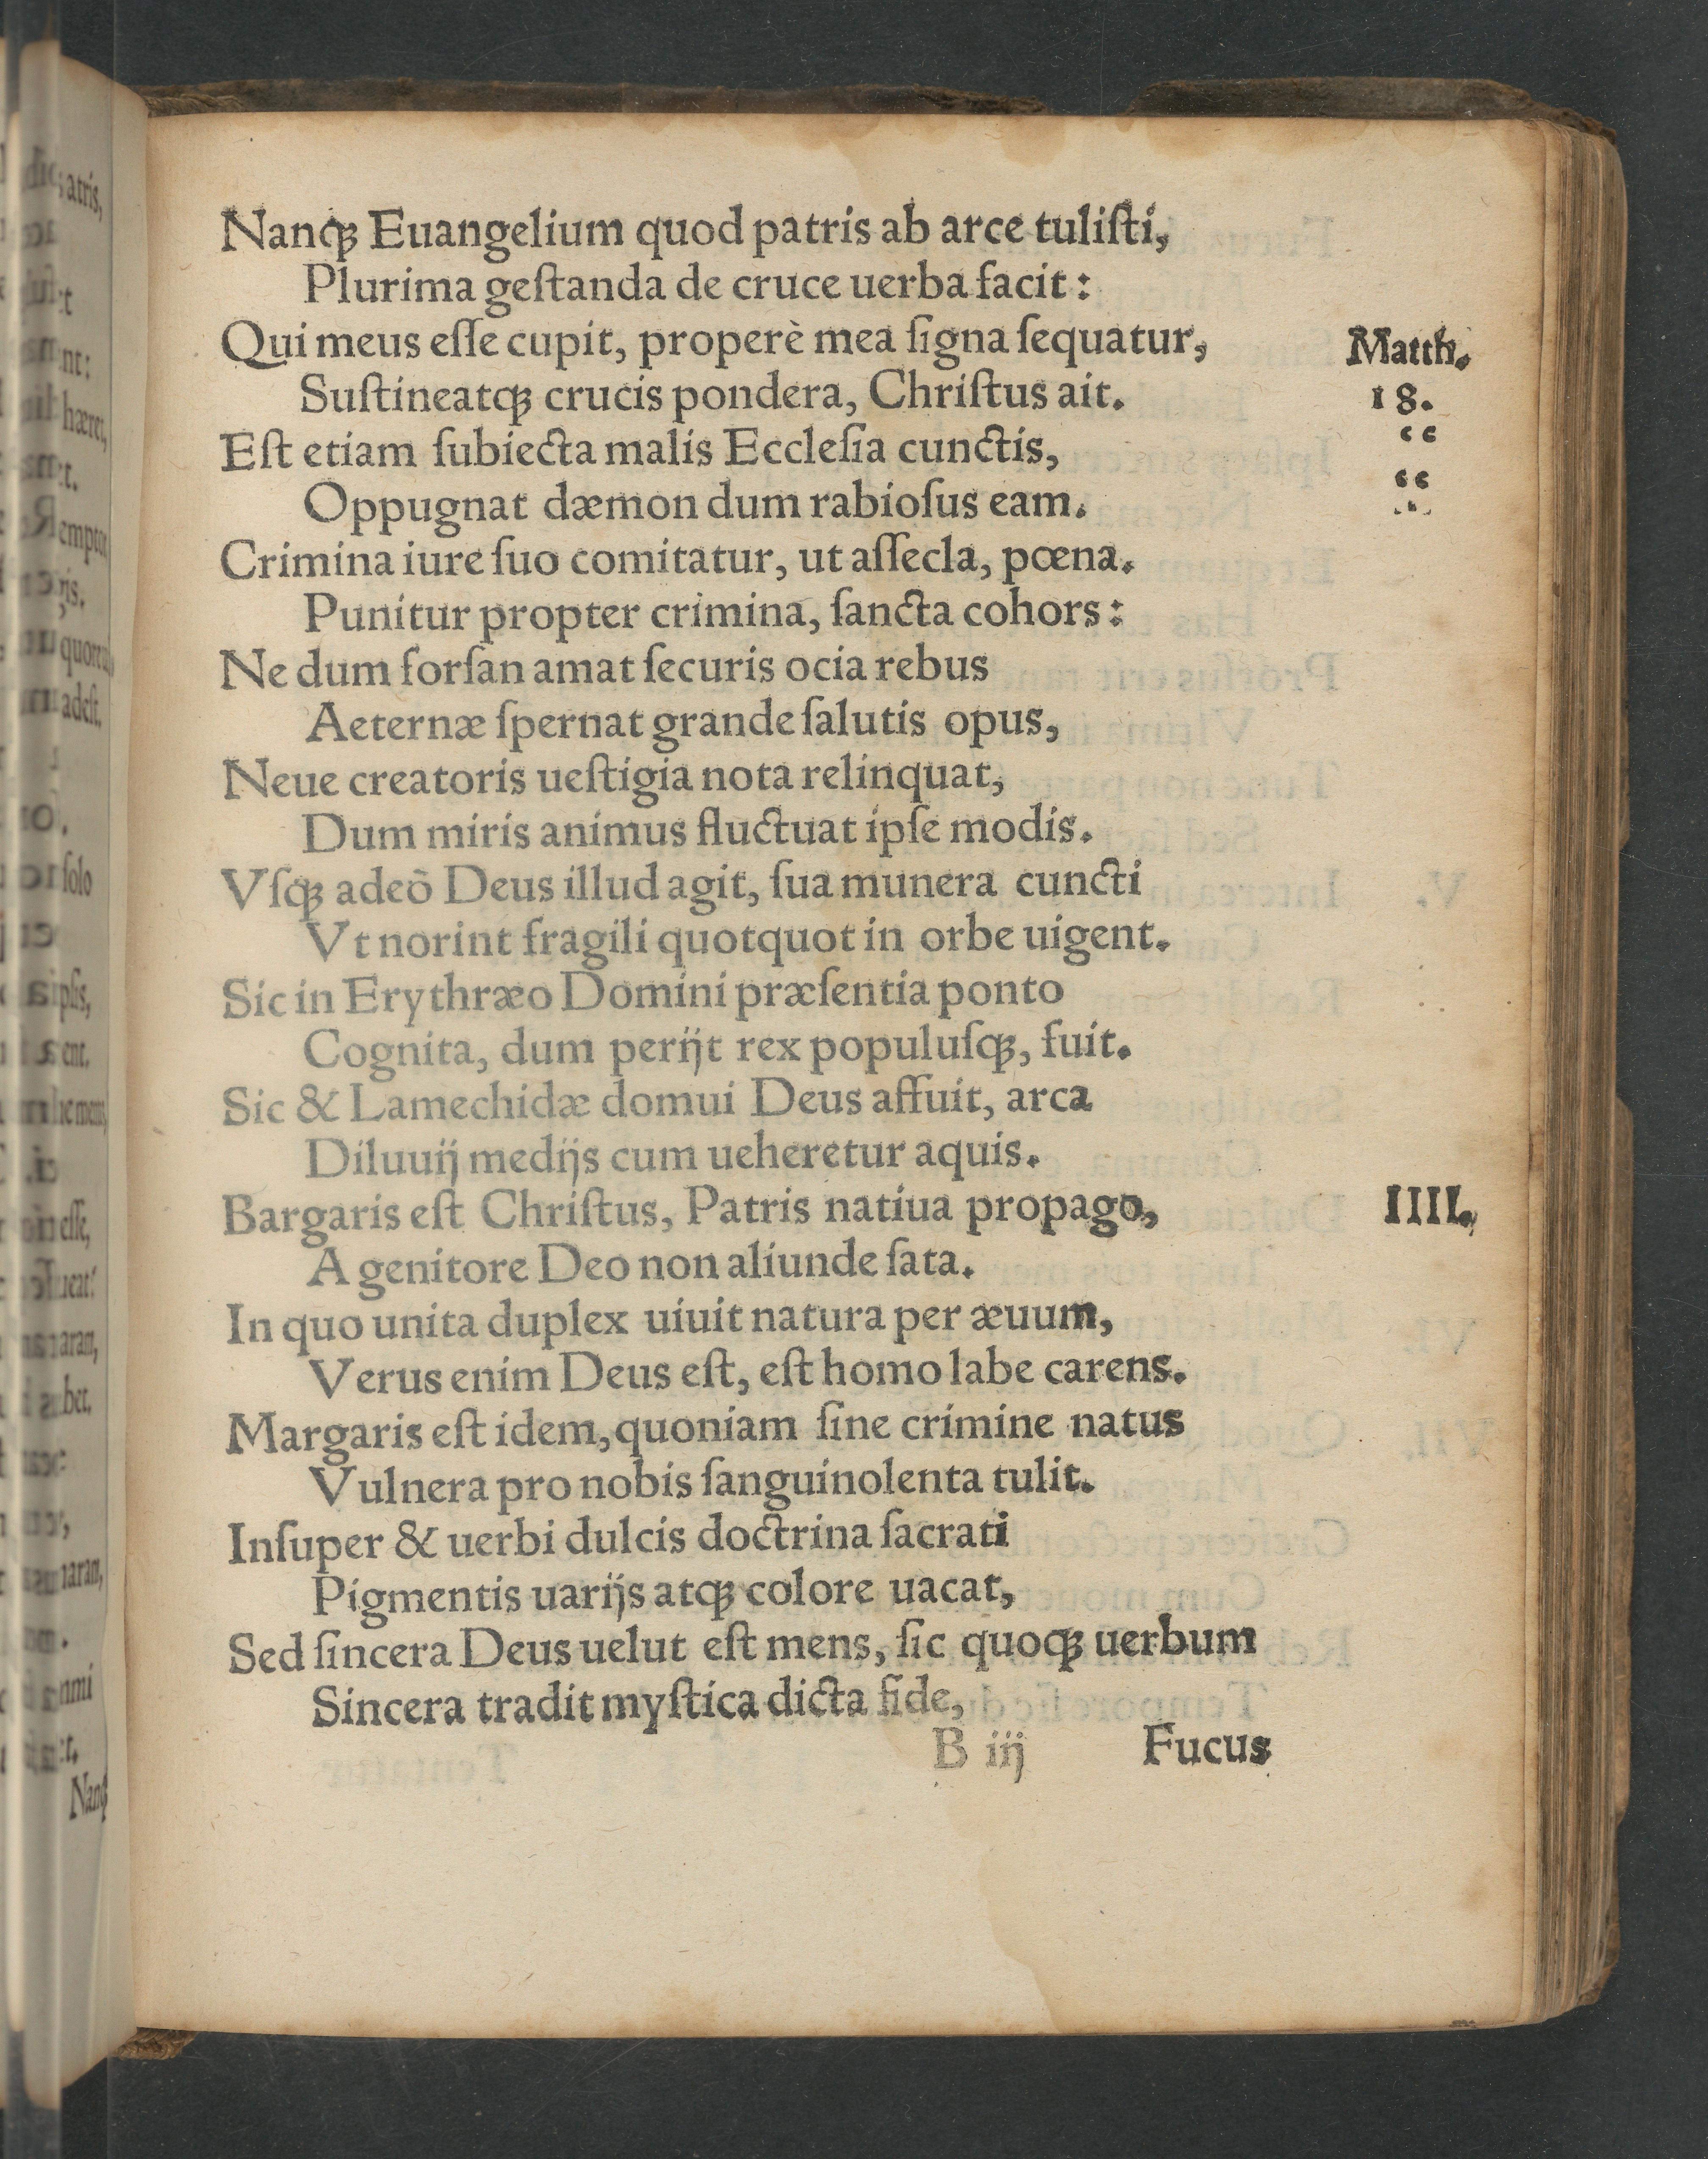 Nanqꝫ Euangelium quod patris ab arce tuliſti,
Plurima geſtanda de cruce uerba facit:
Qui meus eſſe cupit, properè mea ſigna ſequatur,
Matth.
Suſtineatqꝫ crucis pondera, Chriſtus ait.
18.
Eſt etiam ſubiecta malis Eccleſia cunctis,
“
Oppugnat dæmon dum rabioſus eam.
“
Crimina iure ſuo comitatur, ut aſſecla, pœna.
Punitur propter crimina, ſancta cohors:
Ne dum forſan amat ſecuris ocia rebus
Aeternæ ſpernat grande ſalutis opus,
Neue creatoris ueſtigia nota relinquat,
Dum miris animus fluctuat ipſe modis.
Vſqꝫ adeō Deus illud agit, ſua munera cuncti
Vt norint fragili quotquot in orbe uigent.
Sic in Erythræo Domini præſentia ponto
Cognita, dum perijt rex populuſqꝫ, fuit.
Sic & Lamechidæ domui Deus affuit, arca
Diluuij medijs cum ueheretur aquis.
Bargaris eſt Chriſtus, Patris natiua propago,
IIII.
A genitore Deo non aliunde ſata.
In quo unita duplex uiuit natura per æuum,
Verus enim Deus eſt, eſt homo labe carens.
Margaris eſt idem, quoniam ſine crimine natus
Vulnera pro nobis ſanguinolenta tulit.
Inſuper & uerbi dulcis doctrina ſacrati
Pigmentis uarijs atqꝫ colore uacat,
Sed ſincera Deus uelut eſt mens, ſic quoqꝫ uerbum
Sincera tradit myſtica dicta fide,
B iij Fucus